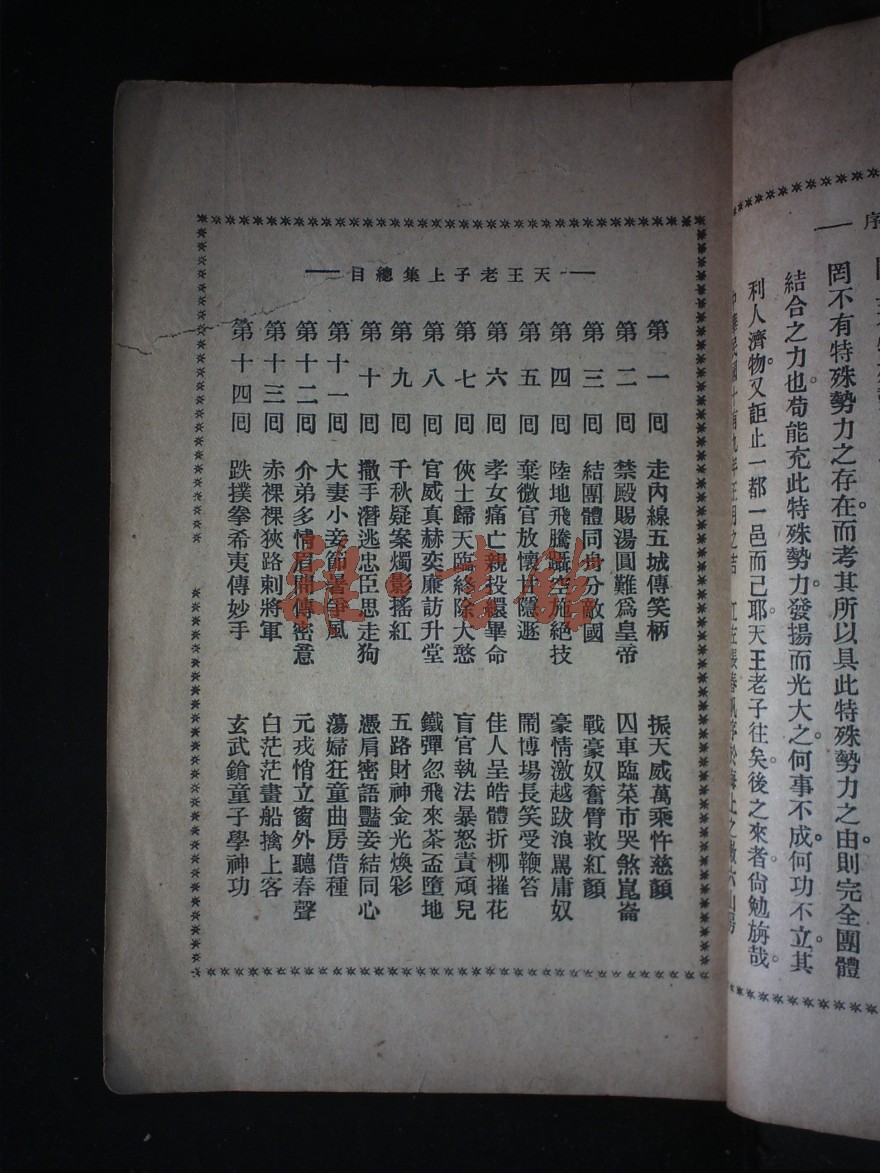 序
罔不有特殊勢力之存在而考其所以具此特殊勢力之由則完全團體
結合之力也苟能充此特殊勢力發揚而光大之何事不成何功不立其
利人濟物又詎止一都一邑而已耶天王老子往矣後之來者尙勉旃哉
天王老子上集總目
第一回 走內線五城傳笑柄 振天威萬乘忤慈顏
第二回 禁殿賜湯圓難爲皇帝 囚車臨菜市哭煞崑崙
第三回 結團體同身分敵國 戰豪奴奮臂救紅顏
第四回 陸地飛騰躡空施絕技 豪情激越跋浪罵庸奴
第五回 棄微官放懷甘隱遯 鬧博場長笑受鞭笞
第六回 孝女痛亡親投繯畢命 佳人呈皓體折柳摧花
第七回 俠士歸天臨終除大憝 盲官執法暴怒責頑兒
第八回 官威真赫奕廉訪升堂 鐵彈忽飛來茶盃墮地
第九回 千秋疑案燭影搖紅 五路財神金光煥彩
第十回 撒手潛逃忠臣思走狗 憑肩密語豔妾結同心
第十一回 大妻小妾節署爭風 蕩婦狂童曲房借種
第十二回 介弟多情眉間傳密意 元戎悄立窗外聽春聲
第十三回 赤裸裸狹路刺將軍 白茫茫畫船擒上客
第十四回 跌撲拳希夷傳妙手 玄武鎗童子學神功